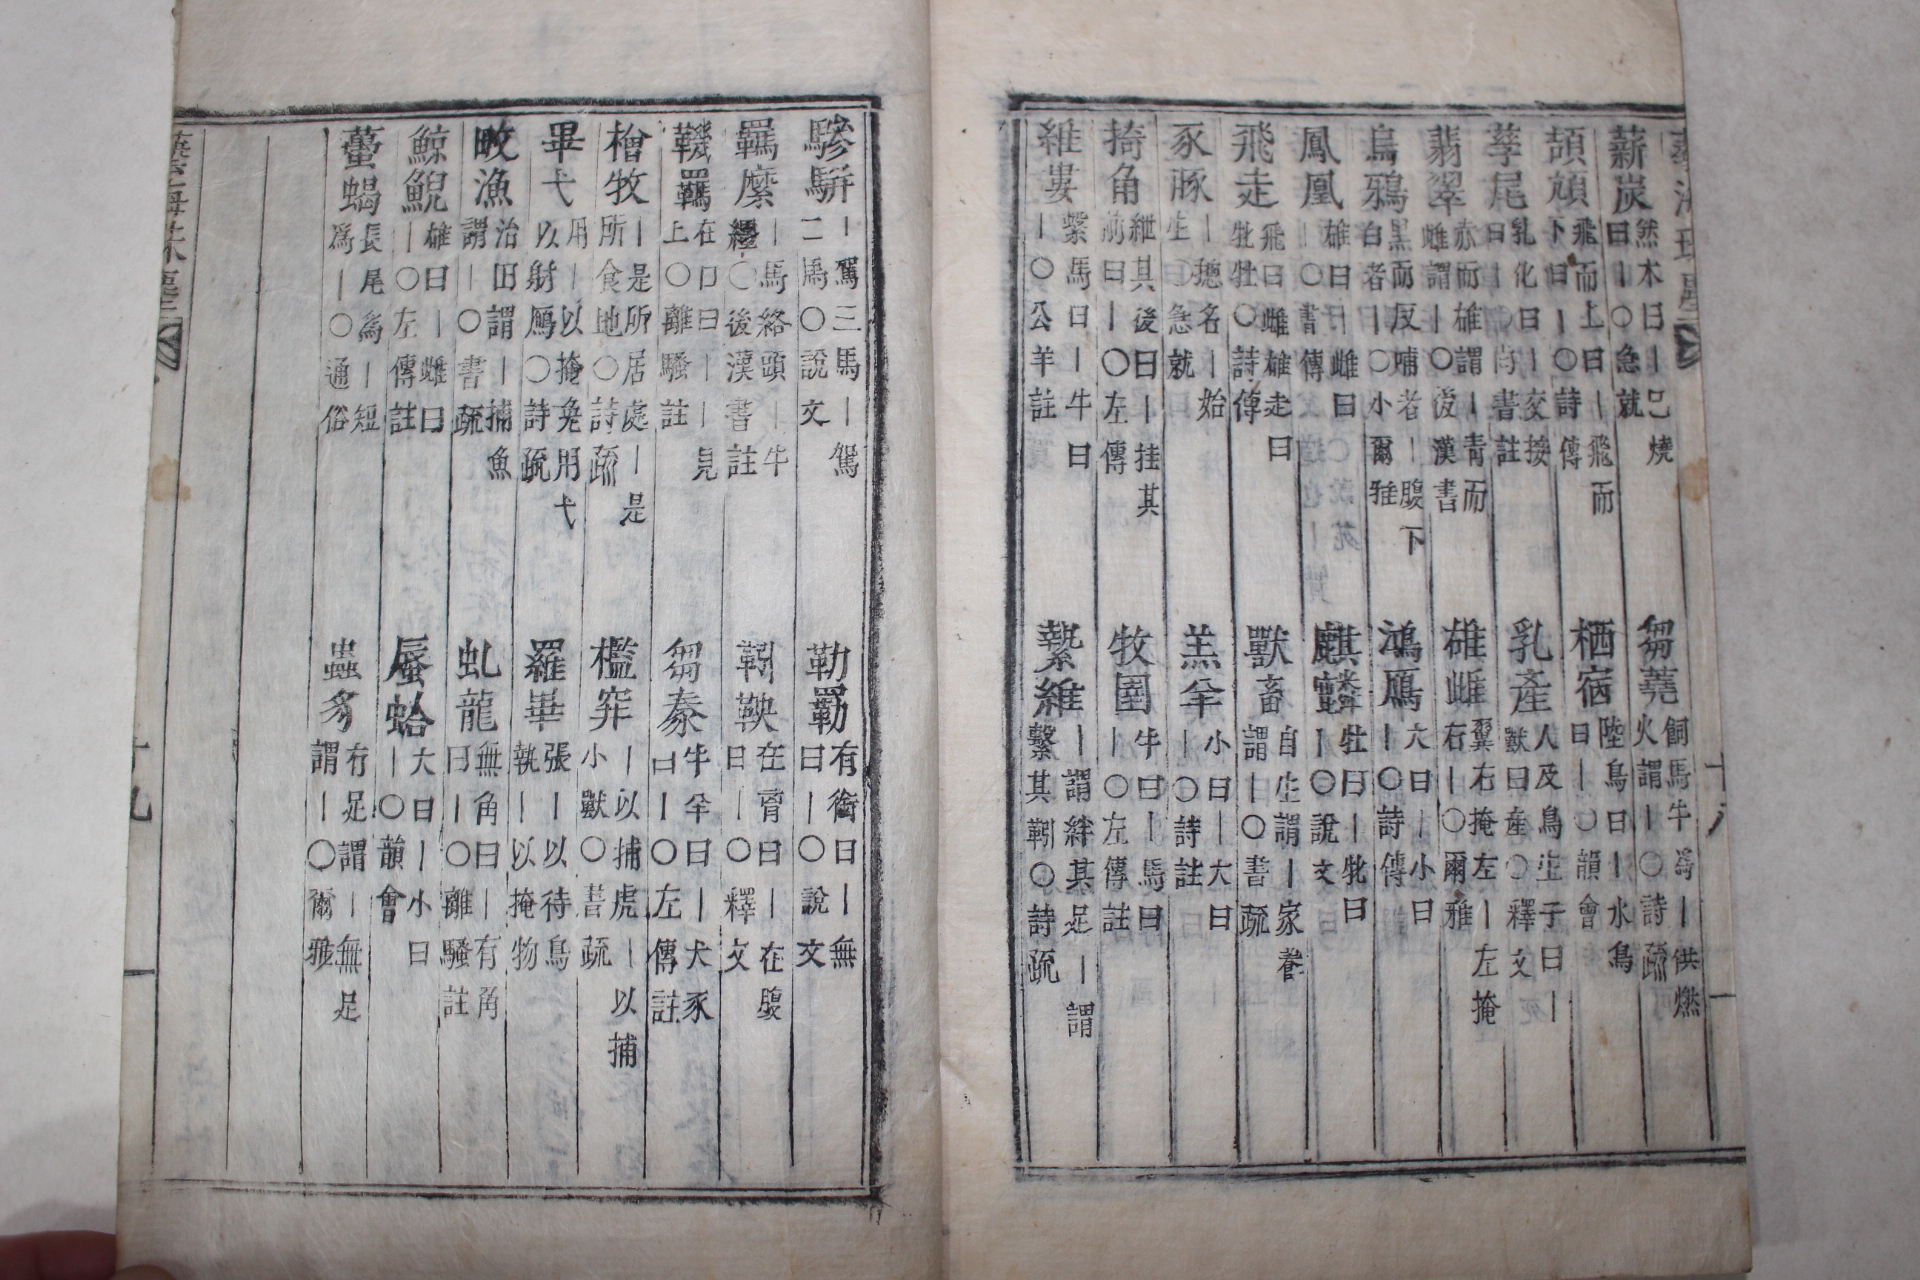 薪炭 然木曰｜已燒曰｜○急就
芻蕘 飼馬牛爲｜供燃火謂｜○詩疏
頡頏 飛而上曰｜飛而下曰｜○詩傳
栖宿 陸鳥曰｜水鳥曰｜○韻會
孶尾 乳化曰｜交接曰｜○書註
乳產 人及鳥生子曰｜獸曰産○釋文
翡翠 赤而雄謂｜青而雌謂｜○後漢書
雄雌 翼右掩左｜左掩右｜○爾雅
烏鴉 黑而反哺者｜腹下白者｜○小爾雅
鴻鴈 大曰｜小曰｜○詩傳
鳳凰 雄曰｜雌曰｜○書傳
麒麟 牡曰｜牝曰｜○說文
飛走 飛曰雌雄走曰牝牡○詩傳
獸畜 自生謂｜家養謂｜○書疏
豕豚 ｜揔名｜始生○急就
羔羊 小曰｜大曰｜○詩註
掎角 紲其後曰｜挂其前曰｜○左傳
牧圉 牛曰｜馬曰｜○左傳註
維婁 繫馬曰｜牛曰｜○公羊註
縶維 ｜謂絆其足｜謂繫其靷○詩疏
十八
驂騈 ｜駕三馬｜駕二馬○說文
勒羈 有銜曰｜無曰｜○說文
羈縻 ｜馬絡頭｜牛纓○後漢書註
靷鞅 在胷曰｜在腹曰｜○釋文
鞿羈 在口曰｜｜見上○離騷註
芻豢 牛羊曰｜犬豕曰｜○左傳註
檜牧 ｜是所居處｜是所食地○詩疏
檻穽 ｜以捕虎｜以捕小獸○書疏
畢弋 用｜以掩兔用弋以射鴈○詩疏
羅畢 張｜以待鳥執｜以掩物
畋漁 治田謂｜捕魚謂｜○書疏
虬龍 無角曰｜有角曰｜○離騷註
鯨鯢 雄曰｜雌曰｜○左傳註
蜃蛤 大曰｜小曰｜○韻會
蠆蝎 長尾爲｜短爲｜○通俗
蟲豸 有足謂｜無足謂｜○爾雅
十九